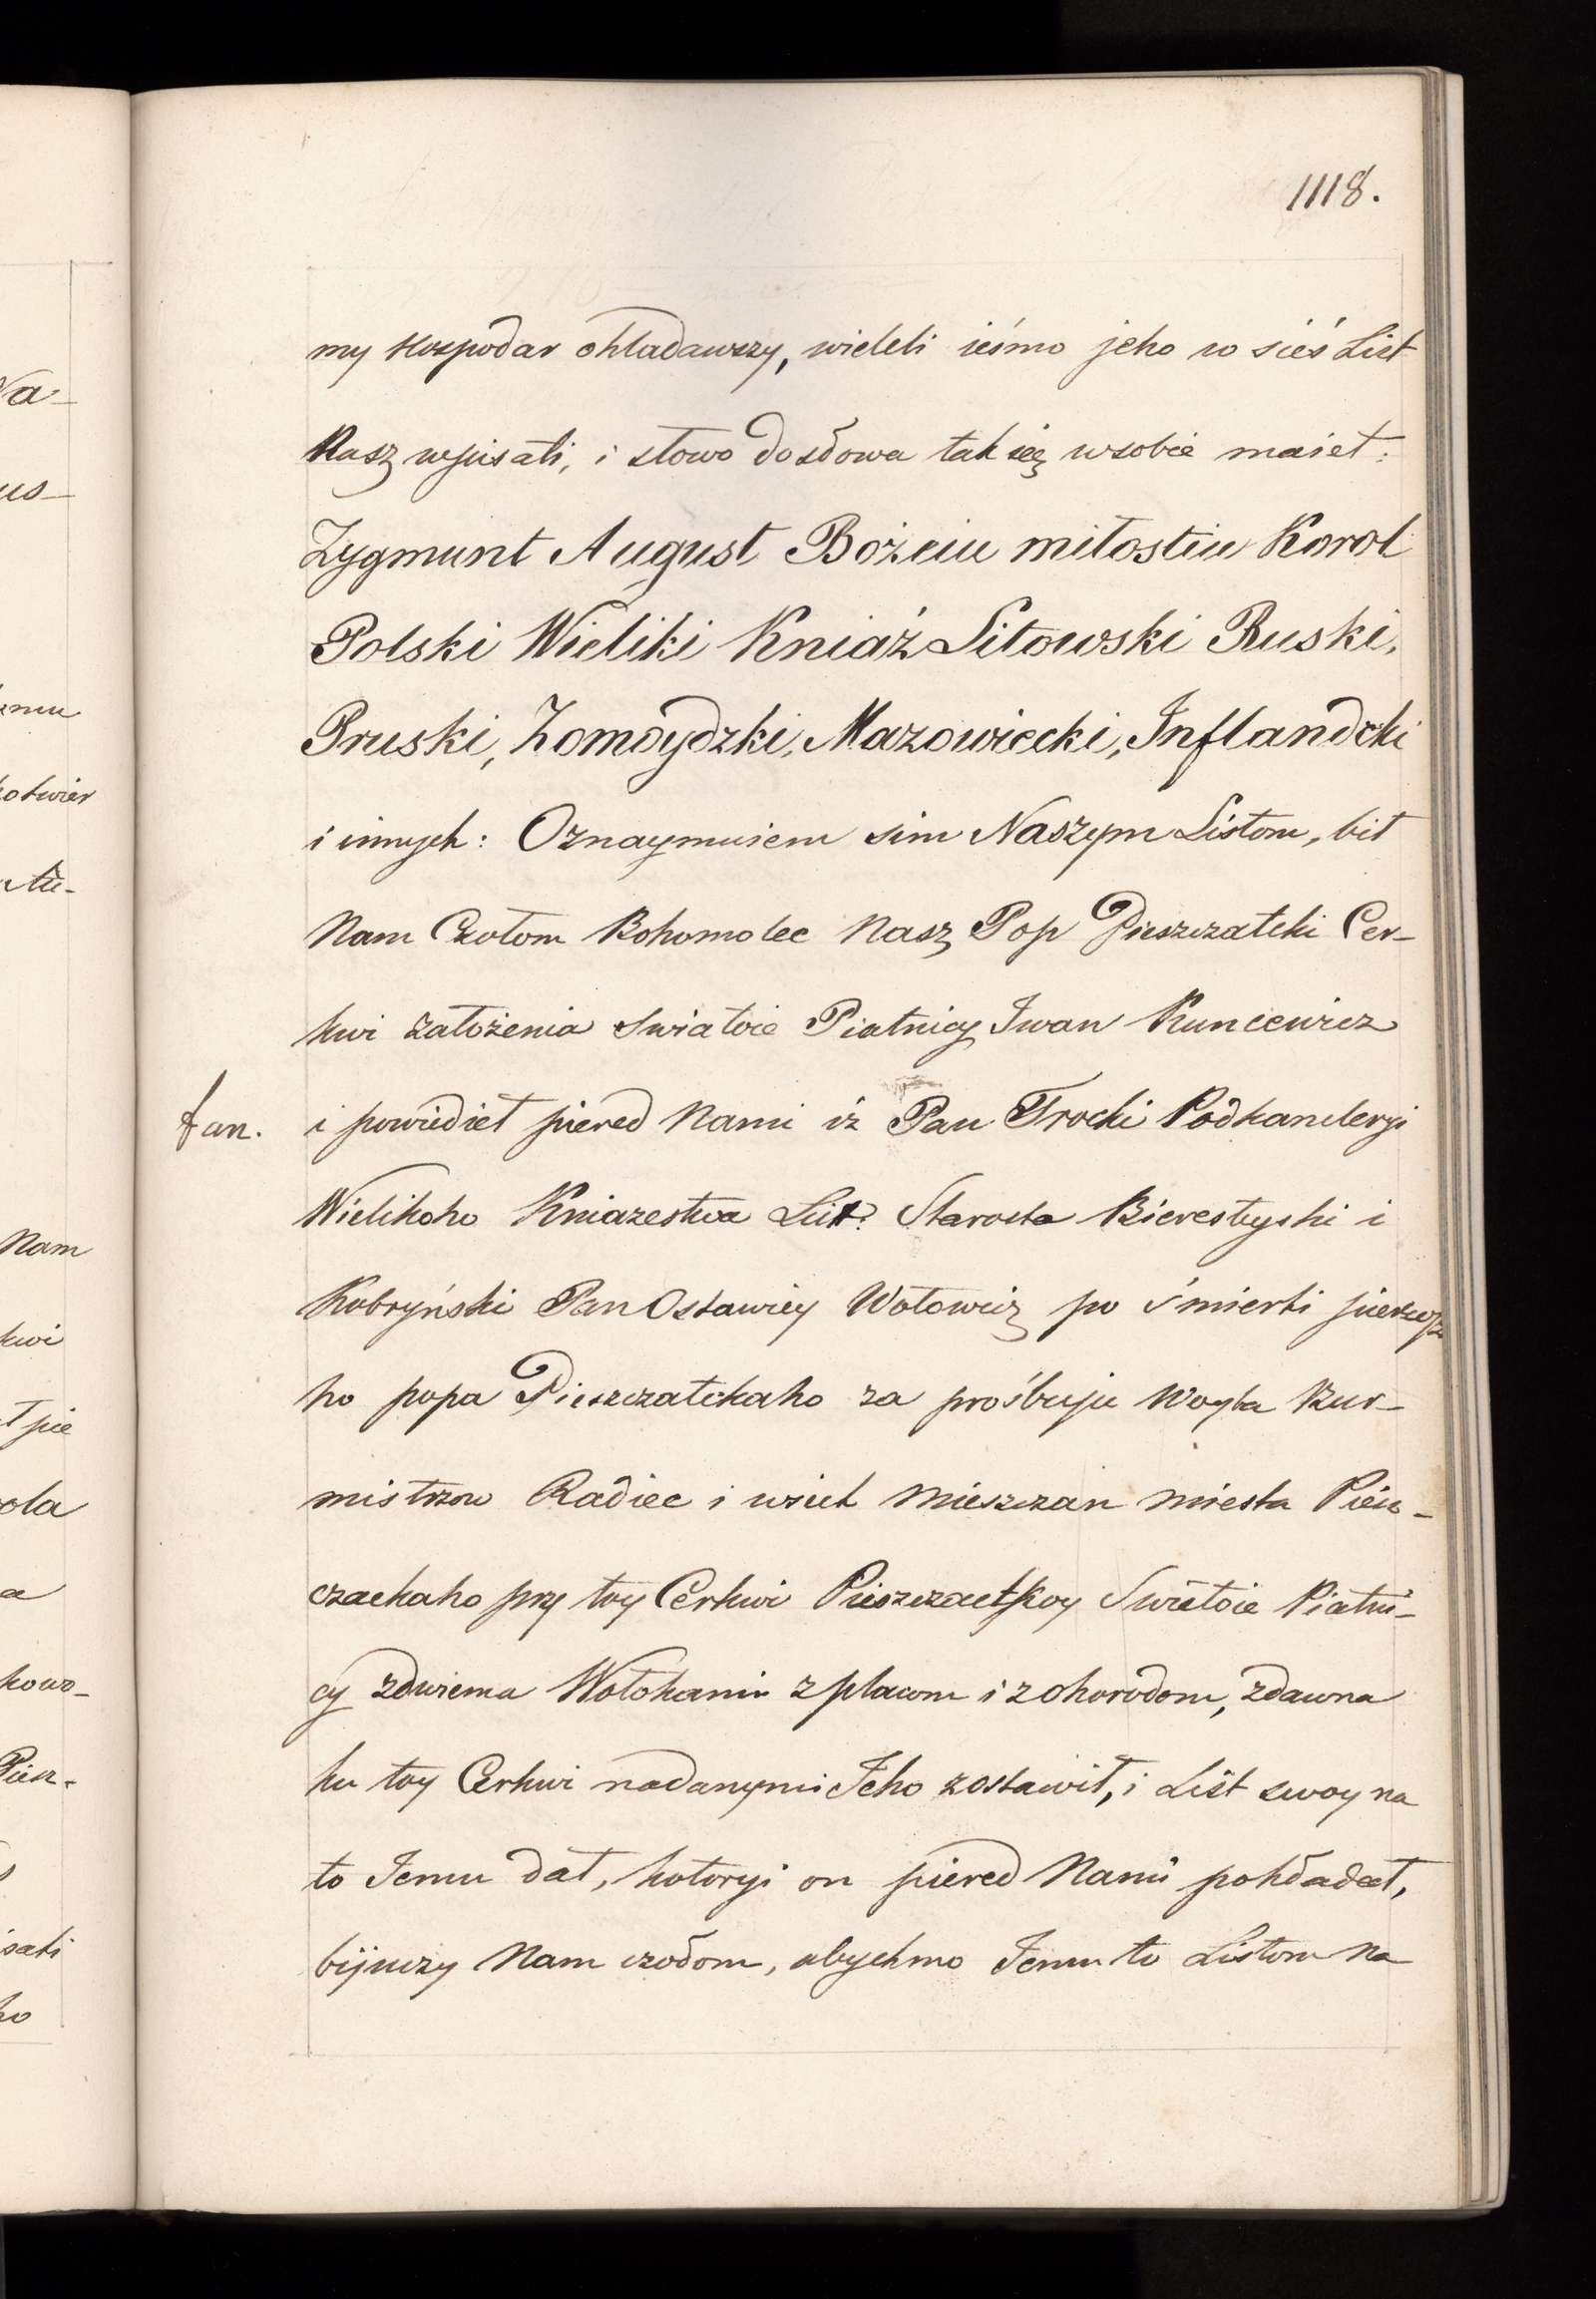 1118.
my Hospodar ohladawszy, wieleli ieśmo jeho w sieś List
Nasz wpisati, i słowo dosłowa tak się wsobie maiet:
Zygmunt August Bożeiu miłostiu Korol
Polski Wieliki Kniaź Litowski Ruski,
Pruski, Żomoydzki, Mazowiecki, Inflandzki
i innych: Oznaymuiem sim Naszym Listom, bił
Nam Czołom Bohomolec Nasz Pop Pieszczatcki Cer-
kwi założenia Swiatoie Piatnicy Iwan Kuncewicz
i powiedieł piered Nami iż Pan Trocki Podkancleryi
Wielikoho Kniazestwa Lit: Starosta Bierestyski i
Kobryński Pan Ostawiey Wołowicz po śmierti pierwsz
ho popa Pieszczatckaho za prośbuju Woyta Bur-
mistrzow Radiec i wsieh Mieszczan miesta Piesz-
czackaho przy toy Cerkwi Pieszczactkoy Swietoie Piatni-
cy zdwiema Wołokami z placom i z ohorodom, zdawna
ku toy Cerkwi nadanymi Jeho zostawił, i List swoy na
to Iemu dał, kotoryi on piered Nami pokładał,
bijuczy Nam czołom, abychmo Iemu to Listom Na